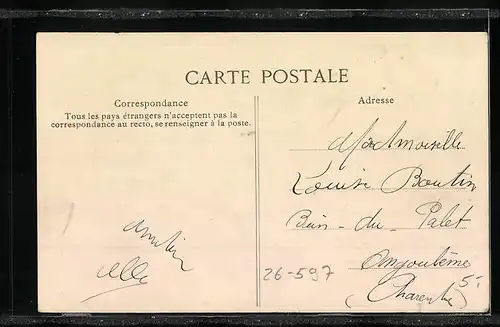 CARTE POSTALE
Correspondance
Tous les pays étrangers n'acceptent pas la
correspondance au recto, se renseigner à la poste.
Adresse
Mademoiselle
Louise Boutin
Bain - du - Palet
Angoulême
(Charente)
26-597
5.-